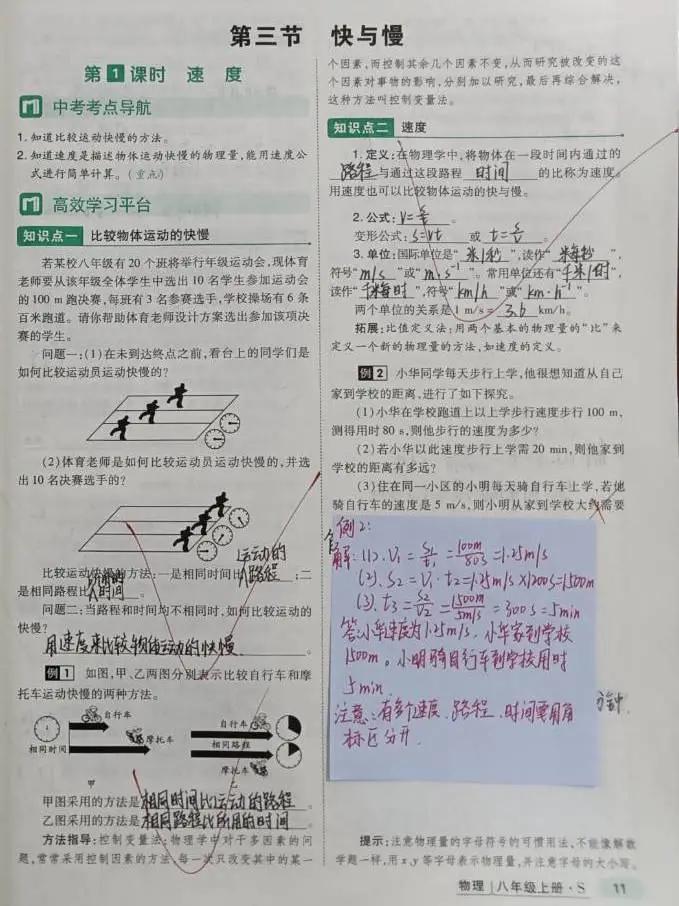 第三节 快与慢
第1课时 速 度
中考考点导航
1. 知道比较运动快慢的方法。
2. 知道速度是描述物体运动快慢的物理量,能用速度公
式进行简单计算。(重点)
高效学习平台
知识点一 比较物体运动的快慢
若某校八年级有20个班将举行年级运动会,现体育
老师要从该年级全体学生中选出10名学生参加运动会
的100 m跑决赛,每班有3名参赛选手,学校操场有6条
百米跑道。请你帮助体育老师设计方案选出参加该项决
赛的学生。
问题一:(1)在未到达终点之前,看台上的同学们是
如何比较运动员运动快慢的?
(2)体育老师是如何比较运动员运动快慢的,并选
出10名决赛选手的?
比较运动快慢的方法:一是相同时间比运动的路程;二
是相同路程比所用的时间。
问题二:当路程和时间均不相同时,如何比较运动的
快慢?
用速度来比较物体运动的快慢
例1 如图,甲、乙两图分别表示比较自行车和摩
托车运动快慢的两种方法。
自行车
相同时间
摩托车
甲
自行车
相同路程
摩托车
乙
甲图采用的方法是相同时间比运动的路程。
乙图采用的方法是相同路程比所用的时间。
方法指导:控制变量法:物理学中对于多因素的问
题,常常采用控制因素的方法,每一次只改变其中的某一
个因素,而控制其余几个因素不变,从而研究被改变的这
个因素对事物的影响,分别加以研究,最后再综合解决,
这种方法叫控制变量法。
知识点二 速度
1. 定义:在物理学中,将物体在一段时间内通过的
路程与通过这段路程时间的比称为速度。
用速度也可以比较物体运动的快与慢。
2. 公式:v=s/t。
变形公式:s=vt 或 t=s/v。
3. 单位:国际单位是“米/秒”,读作“米每秒”,
符号“m/s”或“m·s⁻¹”。常用单位还有“千米/时”,
读作“千米每时”,符号“km/h”或“km·h⁻¹”。
两个单位的关系是1 m/s=3.6 km/h。
拓展:比值定义法:用两个基本的物理量的“比”来
定义一个新的物理量的方法,如速度的定义。
例2 小华同学每天步行上学,他很想知道从自己
家到学校的距离,进行了如下探究。
(1)小华在学校跑道上以上学步行速度步行100 m,
测得用时80 s,则他步行的速度为多少?
(2)若小华以此速度步行上学需20 min,则他家到
学校的距离有多远?
(3)住在同一小区的小明每天骑自行车上学,若他
骑自行车的速度是5 m/s,则小明从家到学校大约需要
分钟
例2:
解:(1). v₁=s₁/t₁=100m/80s=1.25m/s
(2). s₂=v₁·t₂=1.25m/s×1200s=1500m
(3). t₃=s₂/v₂=1500m/5m/s=300s=5min
答:小华速度为1.25m/s。小华家到学校
1500m。小明骑自行车到学校用时
5min.
注意:有多个速度、路程、时间要用角
标区分开.
提示:注意物理量的字母符号的习惯用法,不能像解数
学题一样,用x,y等字母表示物理量,并注意字母的大小写。
物理 八年级上册·S 11